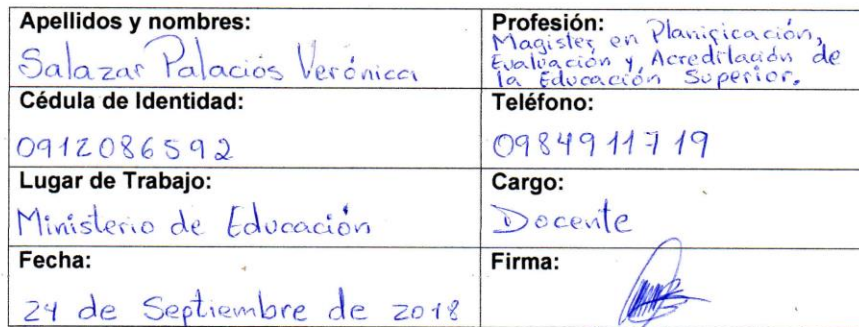 Apellidos y nombres:
Salazar Palacios Verónica
Profesión:
Magister en Planificación,
Evaluación y Acreditación de
la Educación Superior.
Cédula de Identidad:
0912086592
Teléfono:
0984911719
Lugar de Trabajo:
Ministerio de Educación
Cargo:
Docente
Fecha:
24 de Septiembre de 2018
Firma: